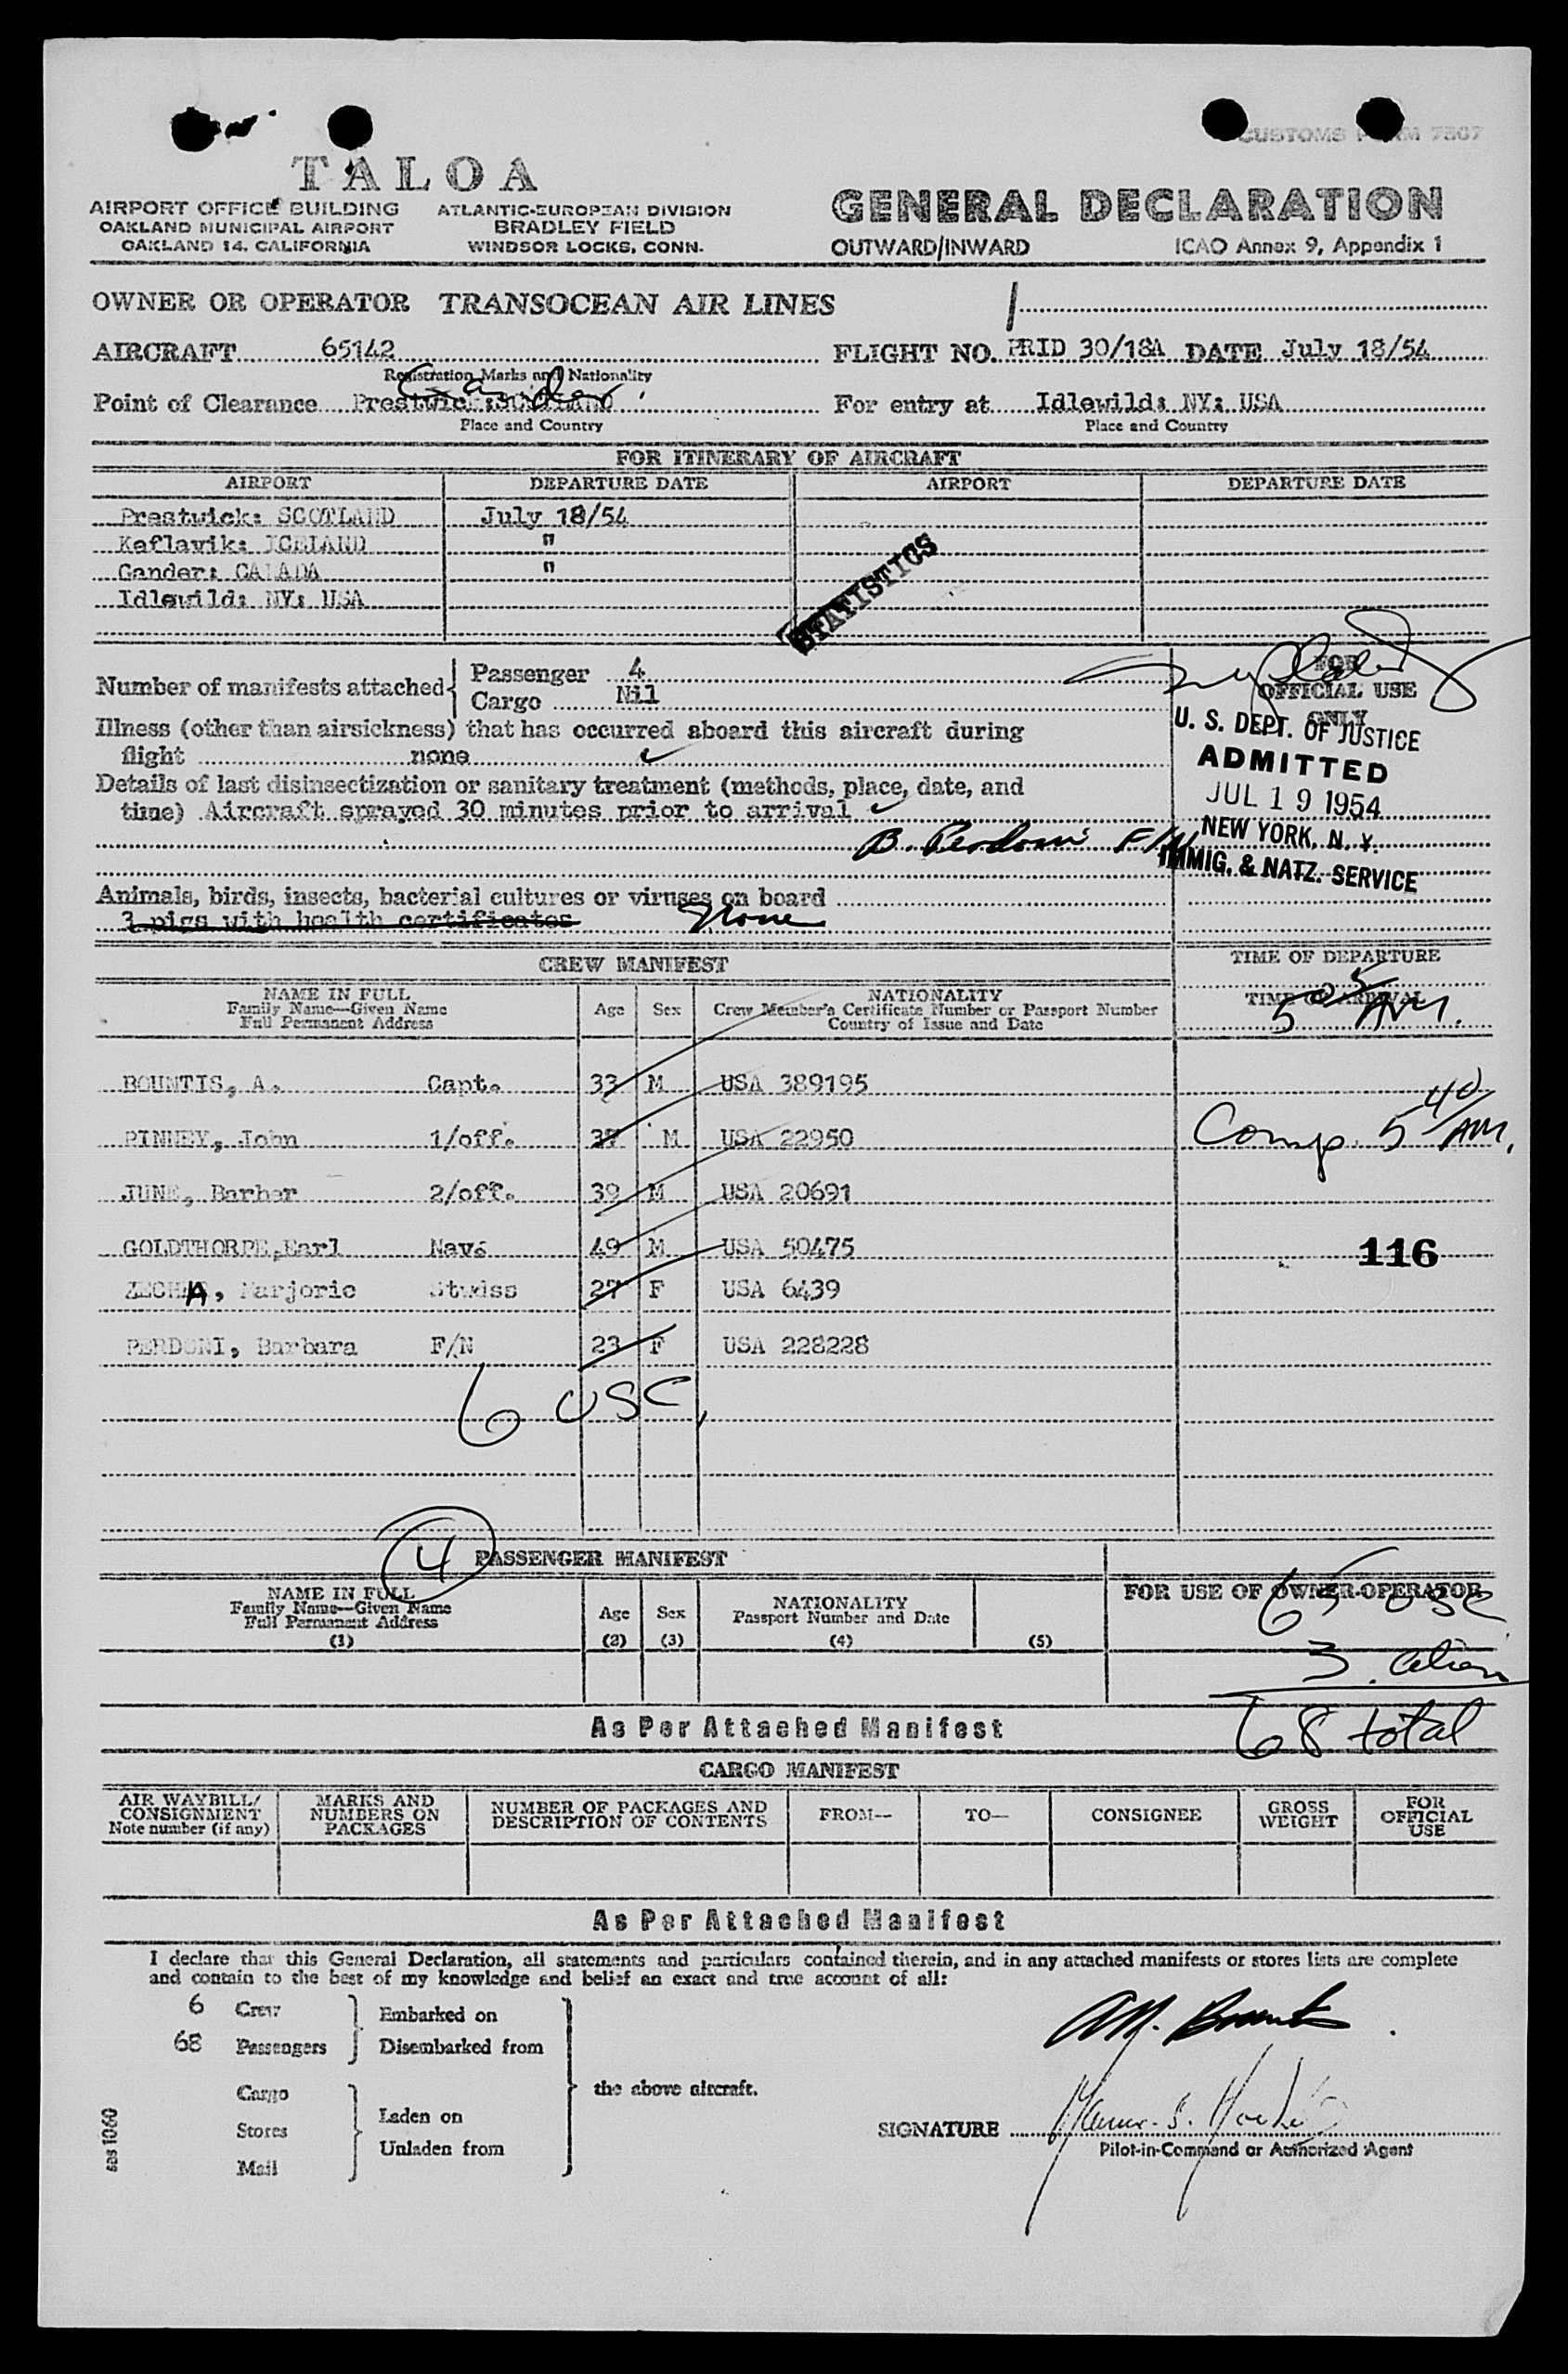 CUSTOMS FORM 7507
TALOA
AIRPORT OFFICE BUILDING
OAKLAND MUNICIPAL AIRPORT
OAKLAND 14, CALIFORNIA
ATLANTIC-EUROPEAN DIVISION
BRADLEY FIELD
WINDSOR LOCKS, CONN.
GENERAL DECLARATION
OUTWARD/INWARD ICAO Annex 9, Appendix 1
OWNER OR OPERATOR TRANSOCEAN AIR LINES
AIRCRAFT 65142 FLIGHT NO. PRID 30/18A DATE July 18/54
Registration Marks and Nationality
Gander
Point of Clearance Prestwick: SCOTLAND For entry at Idlewild: NY: USA
Place and Country Place and Country
FOR ITINERARY OF AIRCRAFT
AIRPORT DEPARTURE DATE AIRPORT DEPARTURE DATE
Prestwick: SCOTLAND July 18/54
Keflavik: ICELAND "
Gander: CANADA "
Idlewild: NY: USA
STATISTICS
Number of manifests attached { Passenger 4
Cargo Nil
FOR
OFFICIAL USE
ONLY
U. S. DEPT. OF JUSTICE
ADMITTED
JUL 19 1954
NEW YORK, N. Y.
IMMIG. & NATZ. SERVICE
Illness (other than airsickness) that has occurred aboard this aircraft during
flight none
Details of last disinsectization or sanitary treatment (methods, place, date, and
time) Aircraft sprayed 30 minutes prior to arrival
B. Perdoni F/N
Animals, birds, insects, bacterial cultures or viruses on board
3 pigs with health certificates None
CREW MANIFEST
TIME OF DEPARTURE
TIME OF ARRIVAL
5 05 AM.
NAME IN FULL
Family Name—Given Name
Full Permanent Address
Age Sex
NATIONALITY
Crew Member's Certificate Number or Passport Number
Country of Issue and Date
BOUNTIS, A. Capt. 33 M USA 389195
Comp. 5 40 AM.
PINNEY, John 1/off. 37 M USA 22950
JUNE, Barber 2/off. 39 M USA 20691
GOLDTHORPE, Earl Nav. 49 M USA 50475
116
ZECHA, Marjorie Stwdss 27 F USA 6439
PERDONI, Barbara F/N 23 F USA 228228
6 USC
4
PASSENGER MANIFEST
NAME IN FULL
Family Name—Given Name
Full Permanent Address
(1)
Age
(2)
Sex
(3)
NATIONALITY
Passport Number and Date
(4) (5)
FOR USE OF OWNER-OPERATOR
65 USC
3 alien
68 total
As Per Attached Manifest
CARGO MANIFEST
AIR WAYBILL/
CONSIGNMENT
Note number (if any)
MARKS AND
NUMBERS ON
PACKAGES
NUMBER OF PACKAGES AND
DESCRIPTION OF CONTENTS
FROM—
TO—
CONSIGNEE
GROSS
WEIGHT
FOR
OFFICIAL
USE
As Per Attached Manifest
I declare that this General Declaration, all statements and particulars contained therein, and in any attached manifests or stores lists are complete
and contain to the best of my knowledge and belief an exact and true account of all:
6 Crew
68 Passengers
Embarked on
Disembarked from
Cargo
Stores
Mail
Laden on
Unladen from
the above aircraft.
SIGNATURE
Pilot-in-Command or Authorized Agent
sas 1060